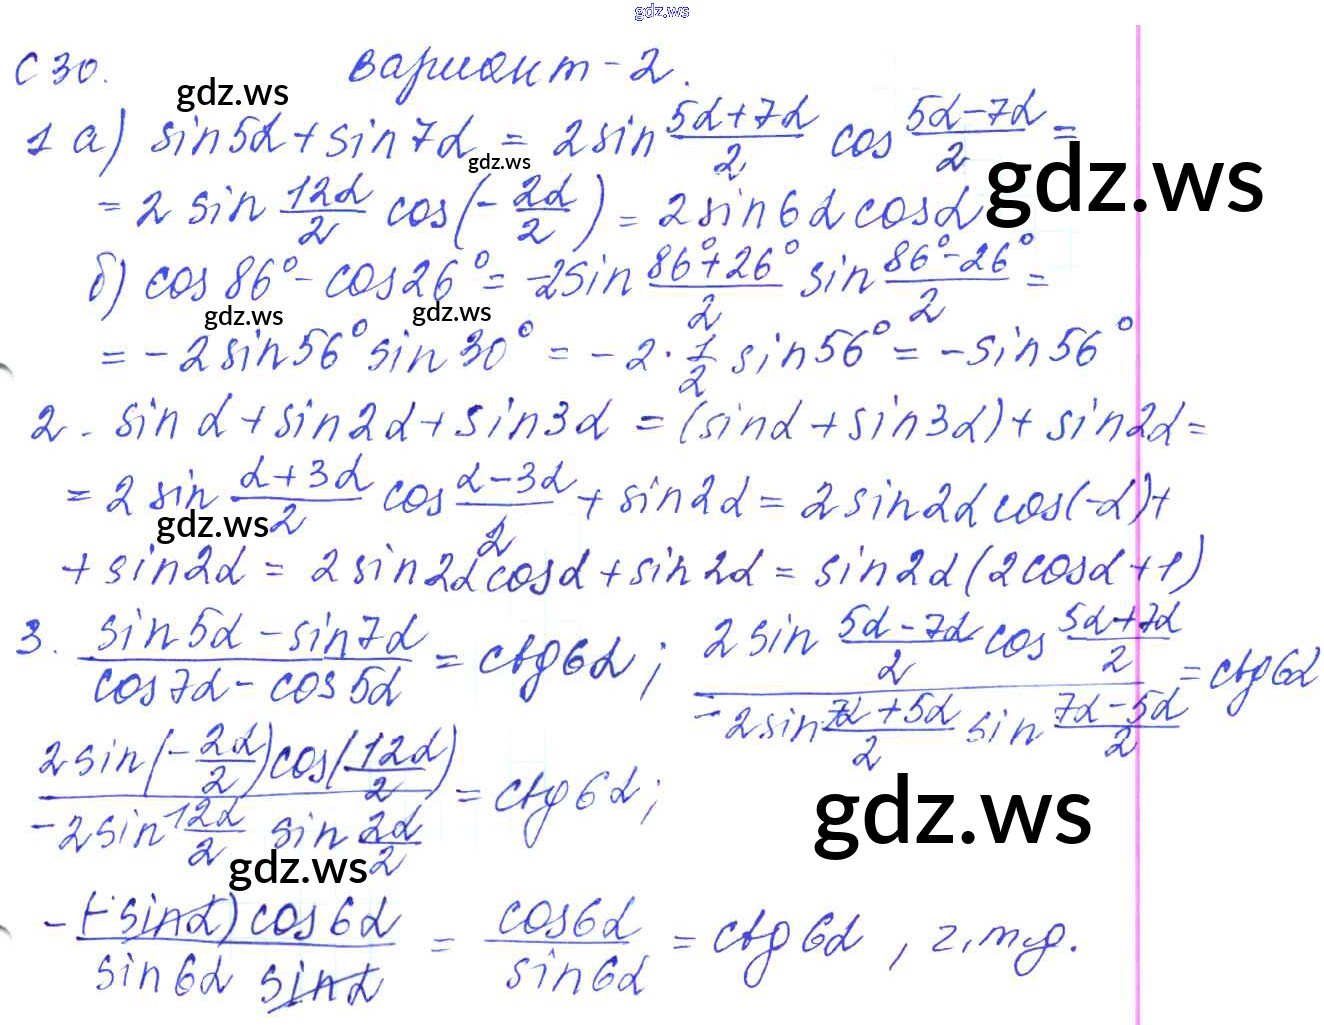 gdz.ws
С 30. вариант - 2.
gdz.ws
1 а) sin5α + sin7α = 2 sin (5α+7α)/2 cos (5α-7α)/2 =
gdz.ws
gdz.ws
= 2 sin 12α/2 cos(-2α/2) = 2 sin6α cosα
б) cos 86° - cos 26° = -2sin (86°+26°)/2 sin (86°-26°)/2 =
gdz.ws gdz.ws
= - 2 sin 56° sin 30° = - 2 · 1/2 sin 56° = - sin 56°
2. sin α + sin2α + sin3α = (sinα + sin3α) + sin2α =
= 2 sin (α+3α)/2 cos (α-3α)/2 + sin2α = 2 sin2α cos(-α) +
gdz.ws
+ sin2α = 2 sin2α cosα + sin2α = sin2α (2cosα + 1)
3. (sin5α - sin7α)/(cos7α - cos5α) = ctg6α; (2 sin (5α-7α)/2 cos (5α+7α)/2)/(-2 sin (7α+5α)/2 sin (7α-5α)/2) = ctg6α
(2 sin(-2α/2) cos(12α/2))/(-2 sin 12α/2 sin 2α/2) = ctg6α;
gdz.ws
gdz.ws
-(-sinα) cos6α/(sin6α sinα) = cos6α/sin6α = ctg6α, ч.т.д.